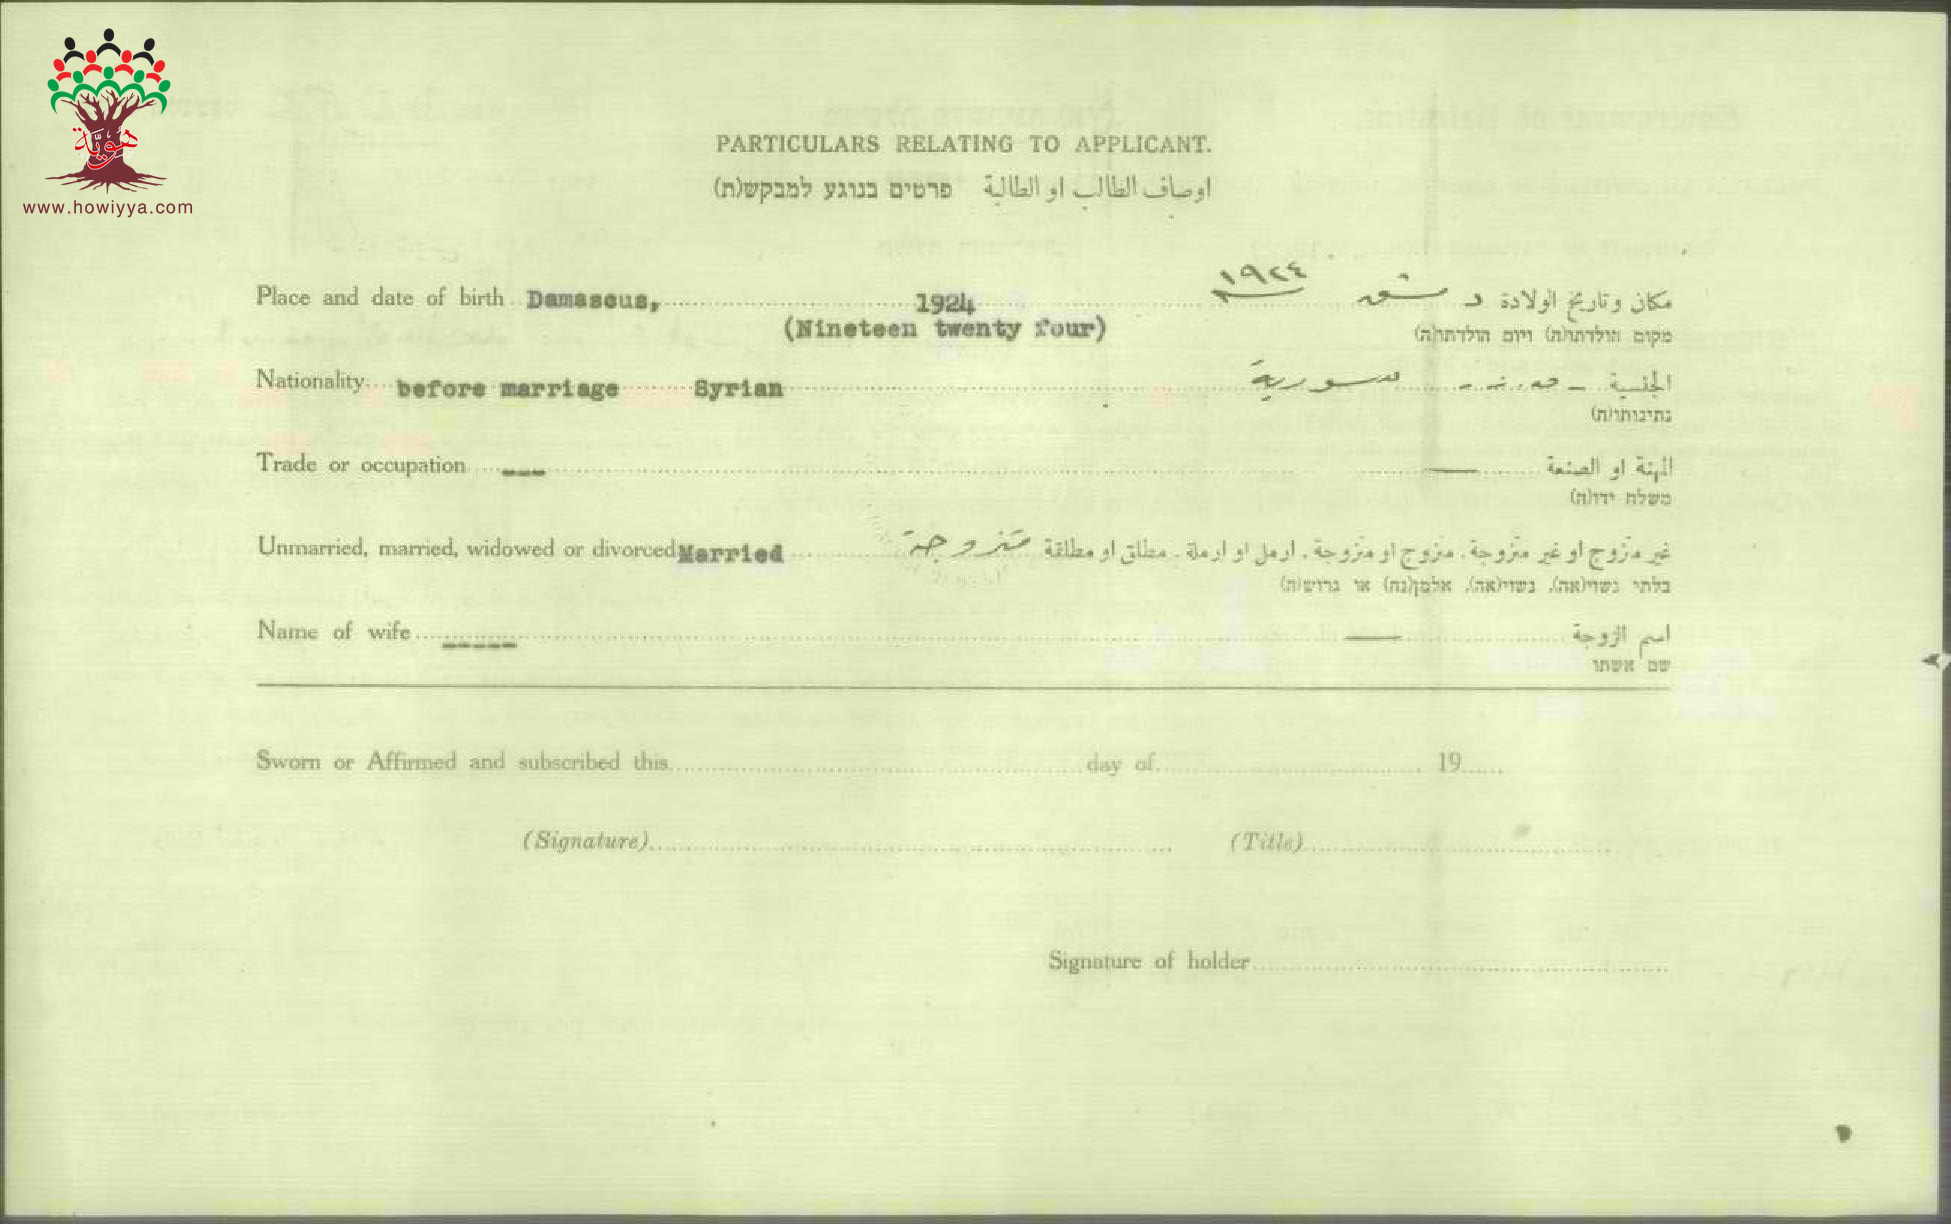 هويّة
www.howiyya.com
PARTICULARS RELATING TO APPLICANT.
اوصاف الطالب او الطالبة פרטים בנוגע למבקש(ת)
Place and date of birth Damascus, 1924 ١٩٢٤ دمشق مكان وتاريخ الولادة
(Nineteen twenty four) מקום הולדתו(ה) ויום הולדתו(ה)
Nationality before marriage Syrian سورية الجنسية
נתינותו(ת)
Trade or occupation --- — المهنة او الصنعة
משלח ידו(ה)
Unmarried, married, widowed or divorced Married متزوجة غير متزوج او غير متزوجة، متزوج او متزوجة، ارمل او ارملة، مطلق او مطلقة
בלתי נשוי(אה), נשוי(אה), אלמן(נה) או גרוש(ה)
Name of wife ----- — اسم الزوجة
שם אשתו
Sworn or Affirmed and subscribed this day of 19
(Signature) (Title)
Signature of holder